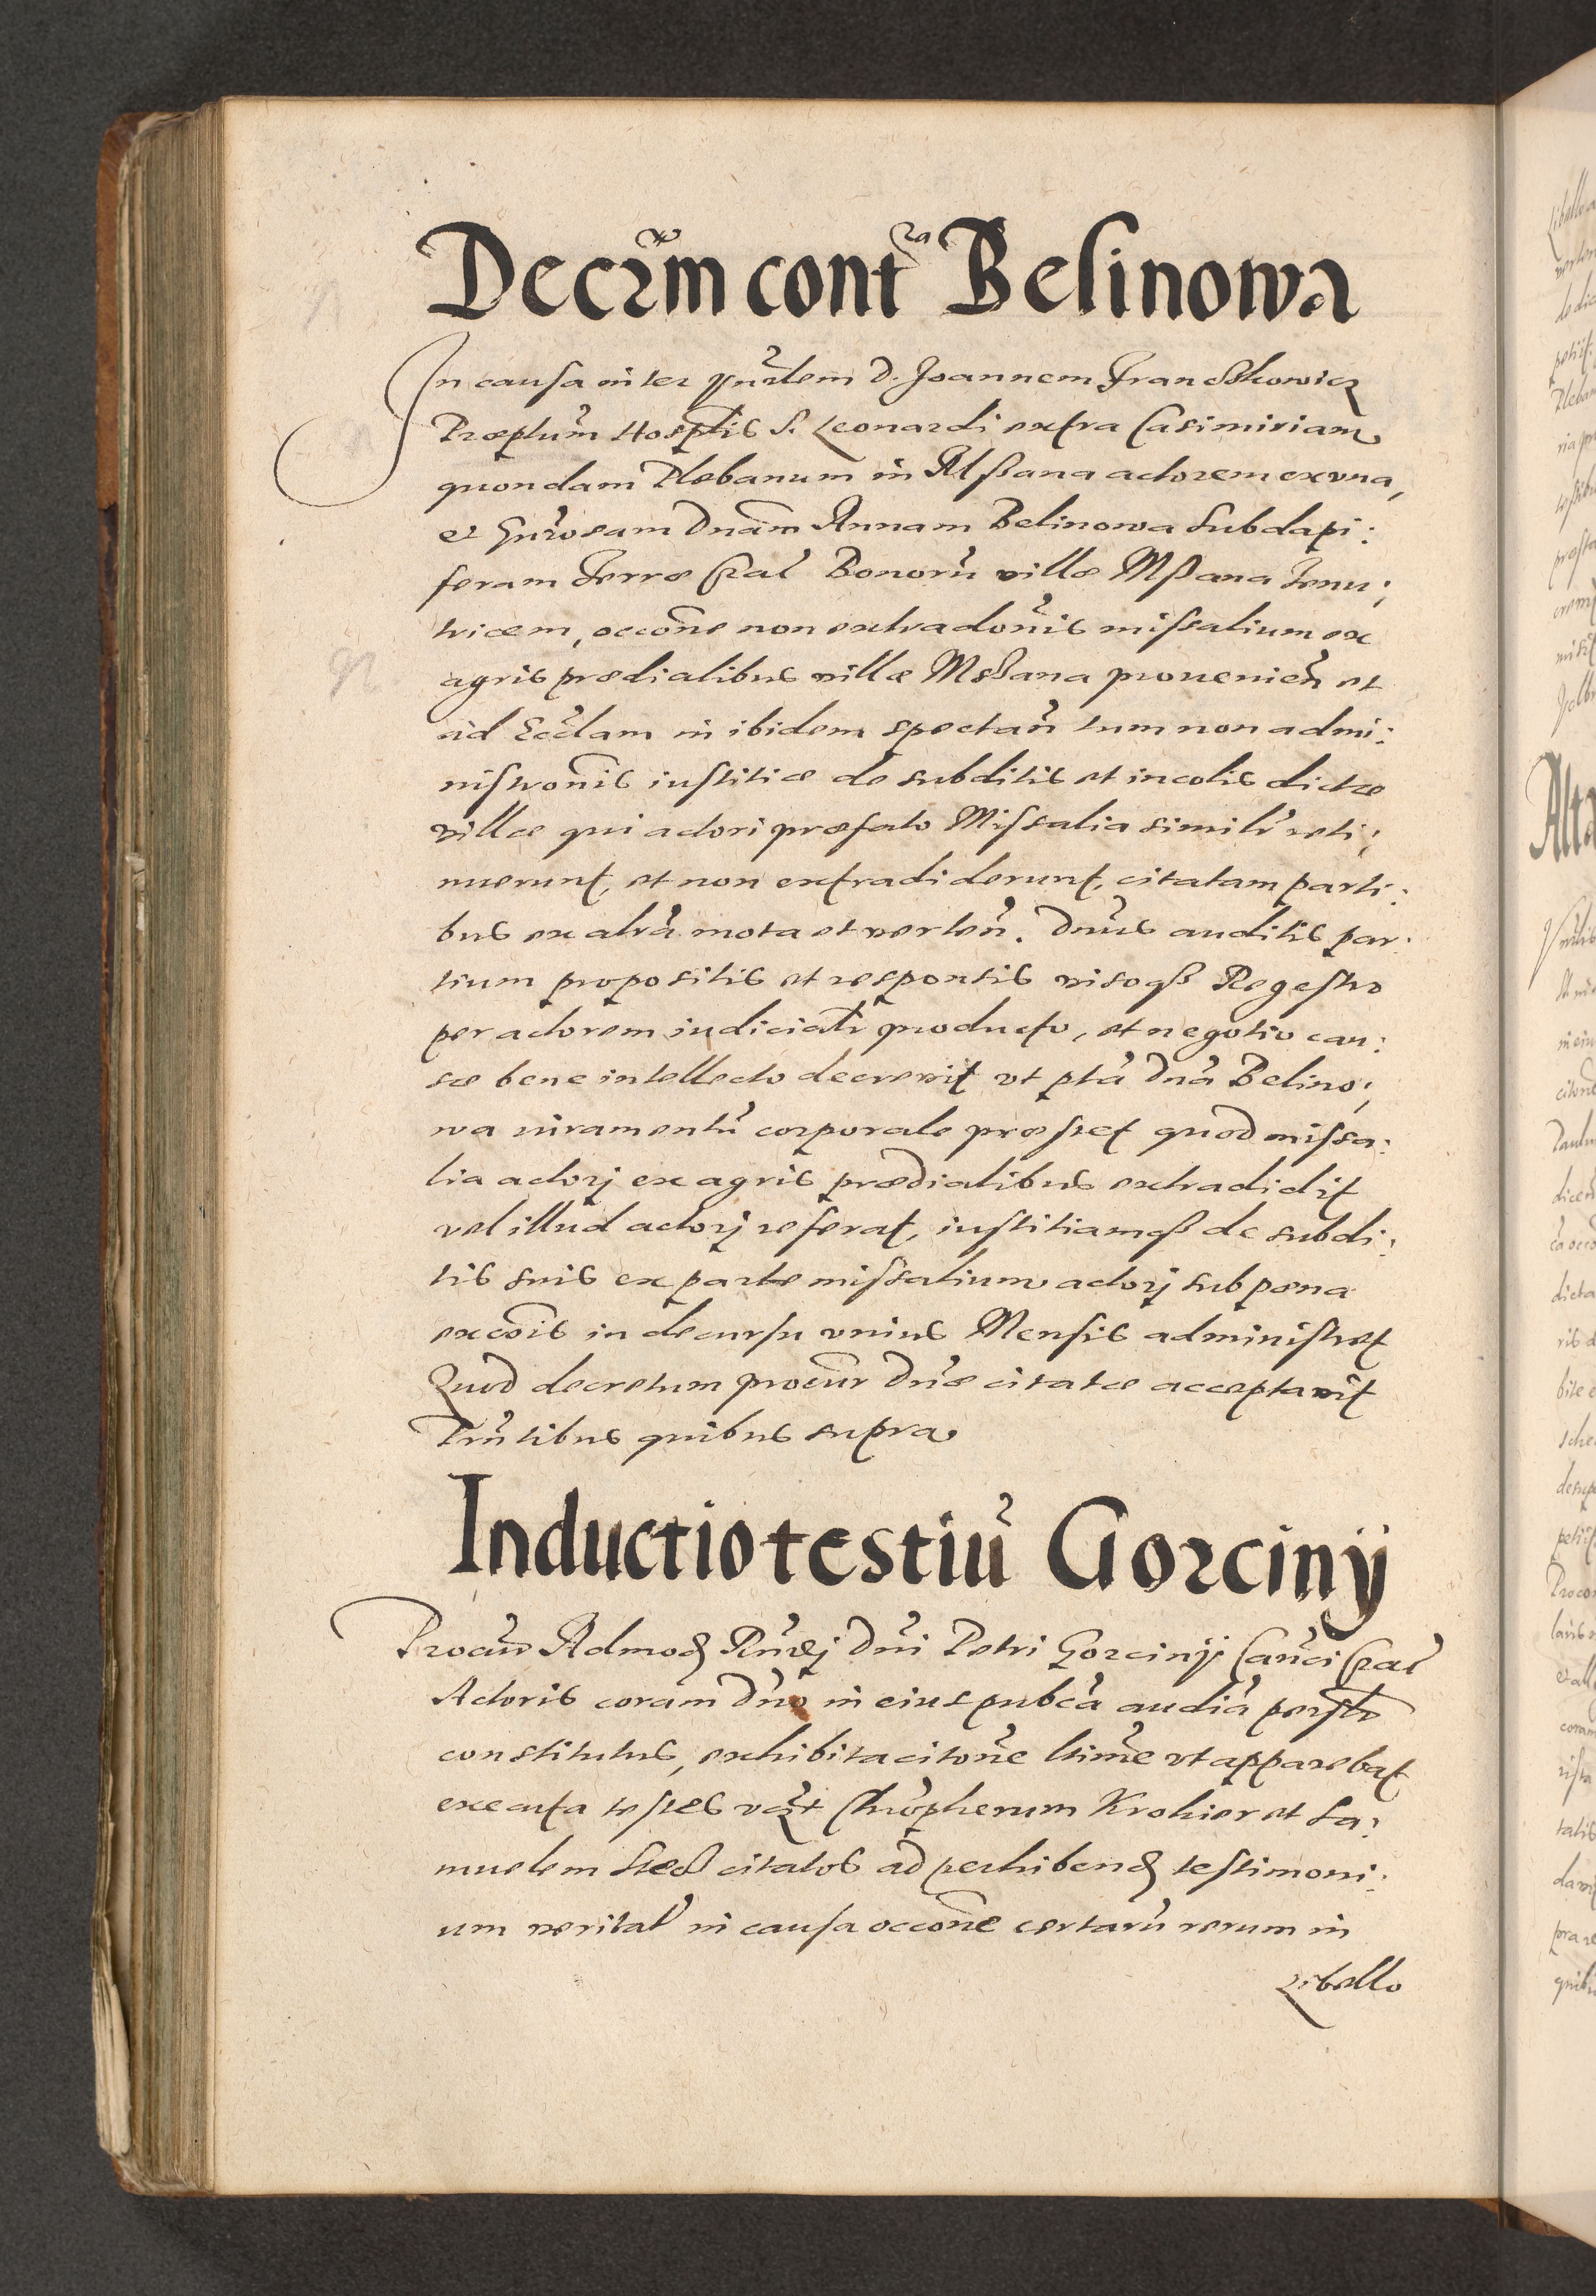 Decrm contra Belinowa
In causa inter D. Joannem Franckowicz
Præptum Hosptlis S. Leonardi extra Casimiriam
quondam Plebanum in Mssana actorem ex vna,
et Gnrosam Dnam Annam Belinowa Subdapi:
feram Terræ Cral Bonorũ villæ Mßana Tenu:
tricem, occone non extradonis missalium ex
agris prædialibus villæ Mssana prouenien et
ad Ecclam in ibidem spectan tum non admi:
nistronis iustitiæ de subditis et incolis dictæ
villæ qui actori præfato Missalia simili reti:
nuerunt, et non extradiderunt, citatam parti:
bus ex altra mota et verten. Dnus auditis par:
tium propositis et responsis visoqß Regestro
per actorem iudiciali producto, et negotio cau:
sæ bene intellecto decrevit vt pta Dna Belino:
wa iuramentũ corporale præstet quod missa:
lia actorj ex agris prædialibus extradidit
vel illud actorj referat, iustitiamqß de subdi:
tis suis ex parte missalium actorj sub pœna
excois in decursu vnius Mensis administret
Quod decretum procur Dnæ citatæ acceptavit
Pntibus quibus supra
Inductio testiũ Gorcinÿ
Procur Admod Rndj Dni Petri Gorcinÿ Canci Cral
Actoris coram Dno in eius pubca audia persltr
constitutus, exhibita citone ltime vt apparebat
executa testes vdzt Chropherum Krokier et Sa:
muelem citatos ad perhibend testimoni:
um veritat in causa occone certarũ rerum in
Libello